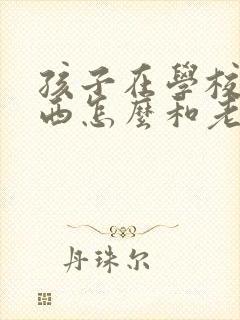 孩子在學校
西怎麼和老
丹珠尔